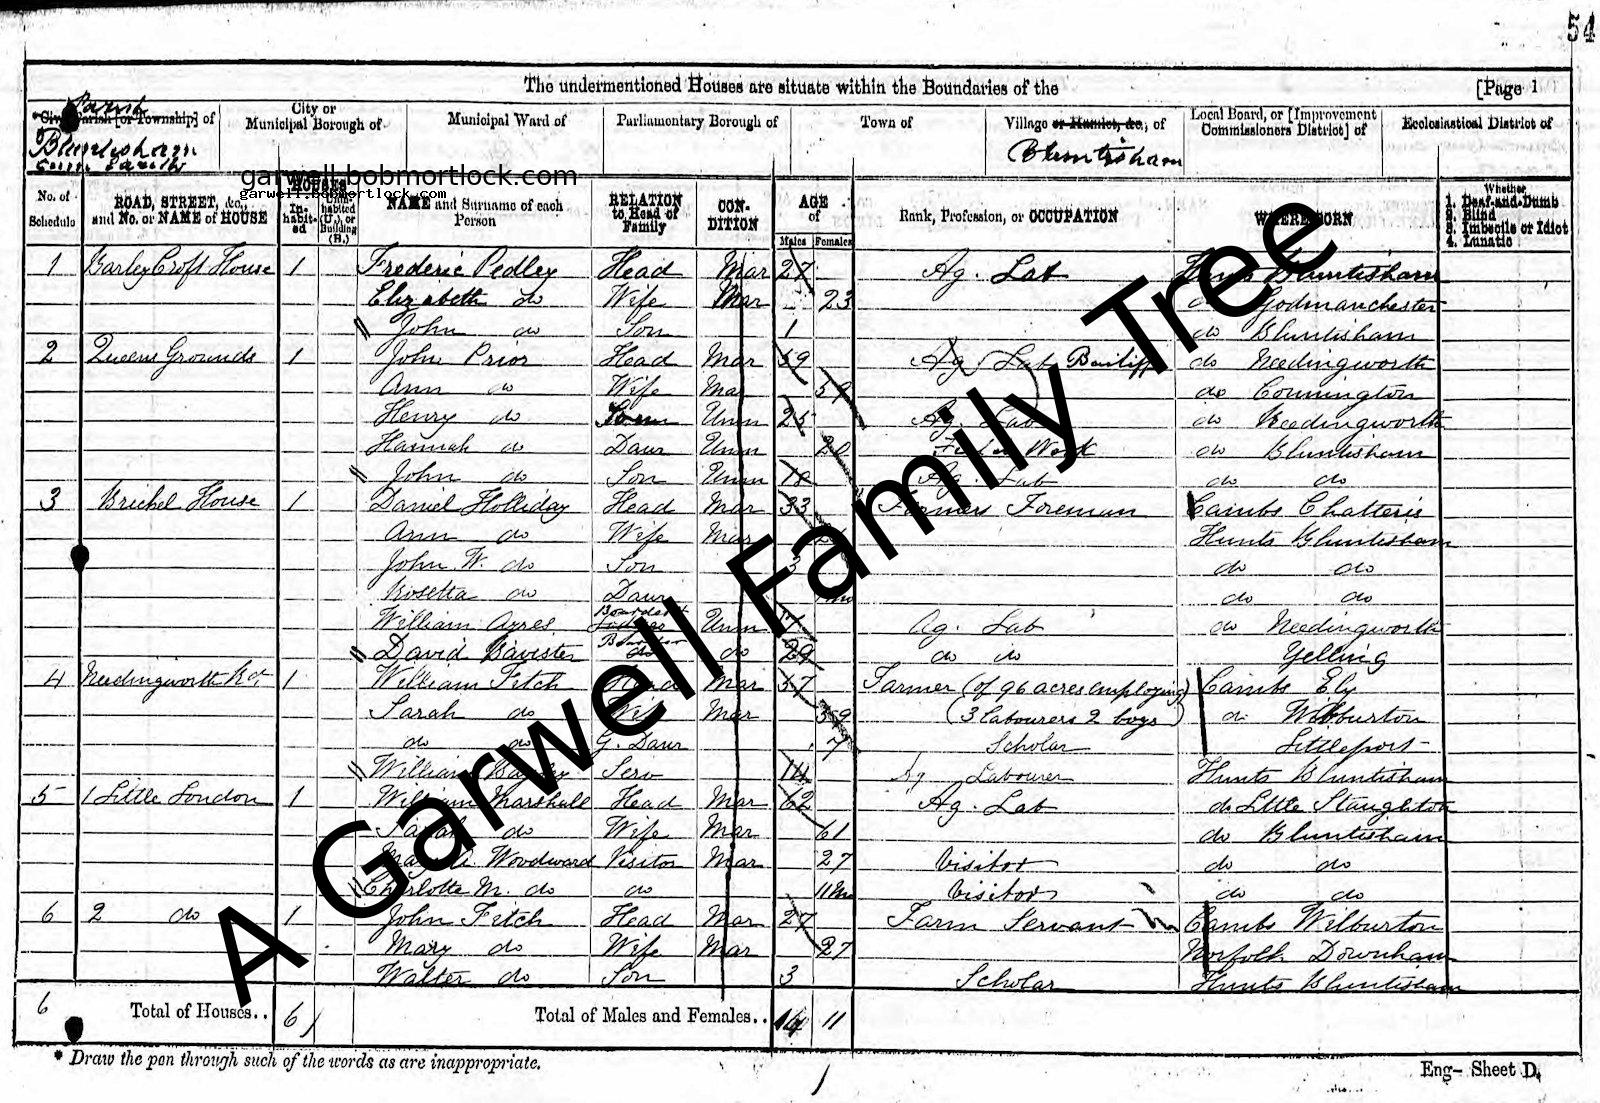 54
The undermentioned Houses are situate within the Boundaries of the [Page 1
Parish
Civil Parish [or Township] of
City or Municipal Borough of
Municipal Ward of
Parliamentary Borough of
Town of
Village or Hamlet, &c., of
Local Board, or [Improvement Commissioners District] of
Ecclesiastical District of
Bluntisham
cum Earith
Bluntisham
garwell.bobmortlock.com
garwell.bobmortlock.com
No. of Schedule
ROAD, STREET, &c., and No. or NAME of HOUSE
HOUSES
In-habit-ed
Unin-habited (U.), or Building (B.)
NAME and Surname of each Person
RELATION to Head of Family
CON-DITION
AGE of
Males Females
Rank, Profession, or OCCUPATION
WHERE BORN
Whether
1. Deaf-and-Dumb
2. Blind
3. Imbecile or Idiot
4. Lunatic
1 Barley Croft House 1 Frederic Pedley Head Mar 27 Ag. Lab Hunts Bluntisham
Elizabeth do Wife Mar 23 do Godmanchester
John do Son 1 do Bluntisham
2 Queens Grounds 1 John Prior Head Mar 59 Ag Lab Bailiff do Needingworth
Ann do Wife Mar 59 do Connington
Henry do Son Unm 25 Ag. Lab do Needingworth
Hannah do Daur Unm 20 Field Work do Bluntisham
John do Son Unm 18 Ag. Lab do do
3 Brickel House 1 Daniel Holliday Head Mar 33 Farmers Foreman Cambs Chatteris
Ann do Wife Mar Hunts Bluntisham
John W. do Son 3 do do
Rosetta do Daur do do
William Ayres Boarder Unm Ag. Lab do Needingworth
David Bavister Boarder do 29 do do Yelling
4 Needingworth Rd 1 William Fitch Head Mar 57 Farmer (of 96 acres employing Cambs Ely
Sarah do Wife Mar 59 (3 labourers 2 boys) do Wilburton
do do G. Daur 7 Scholar Littleport
William Serv 14 Ag Labourer Hunts Bluntisham
5 1 Little London 1 William Marshall Head Mar 62 Ag. Lab do Little Staughton
Sarah do Wife Mar 61 do Bluntisham
Mary A Woodward Visitor Mar 27 Visitor do do
Charlotte M. do do 11 Mo Visitor do do
6 2 do 1 John Fitch Head Mar 27 Farm Servant Cambs Wilburton
Mary do Wife Mar 27 Norfolk Downham
Walter do Son 3 Scholar Hunts Bluntisham
6 Total of Houses.. 6 Total of Males and Females.. 14 11
* Draw the pen through such of the words as are inappropriate.
Eng- Sheet D.
A Garwell Family Tree